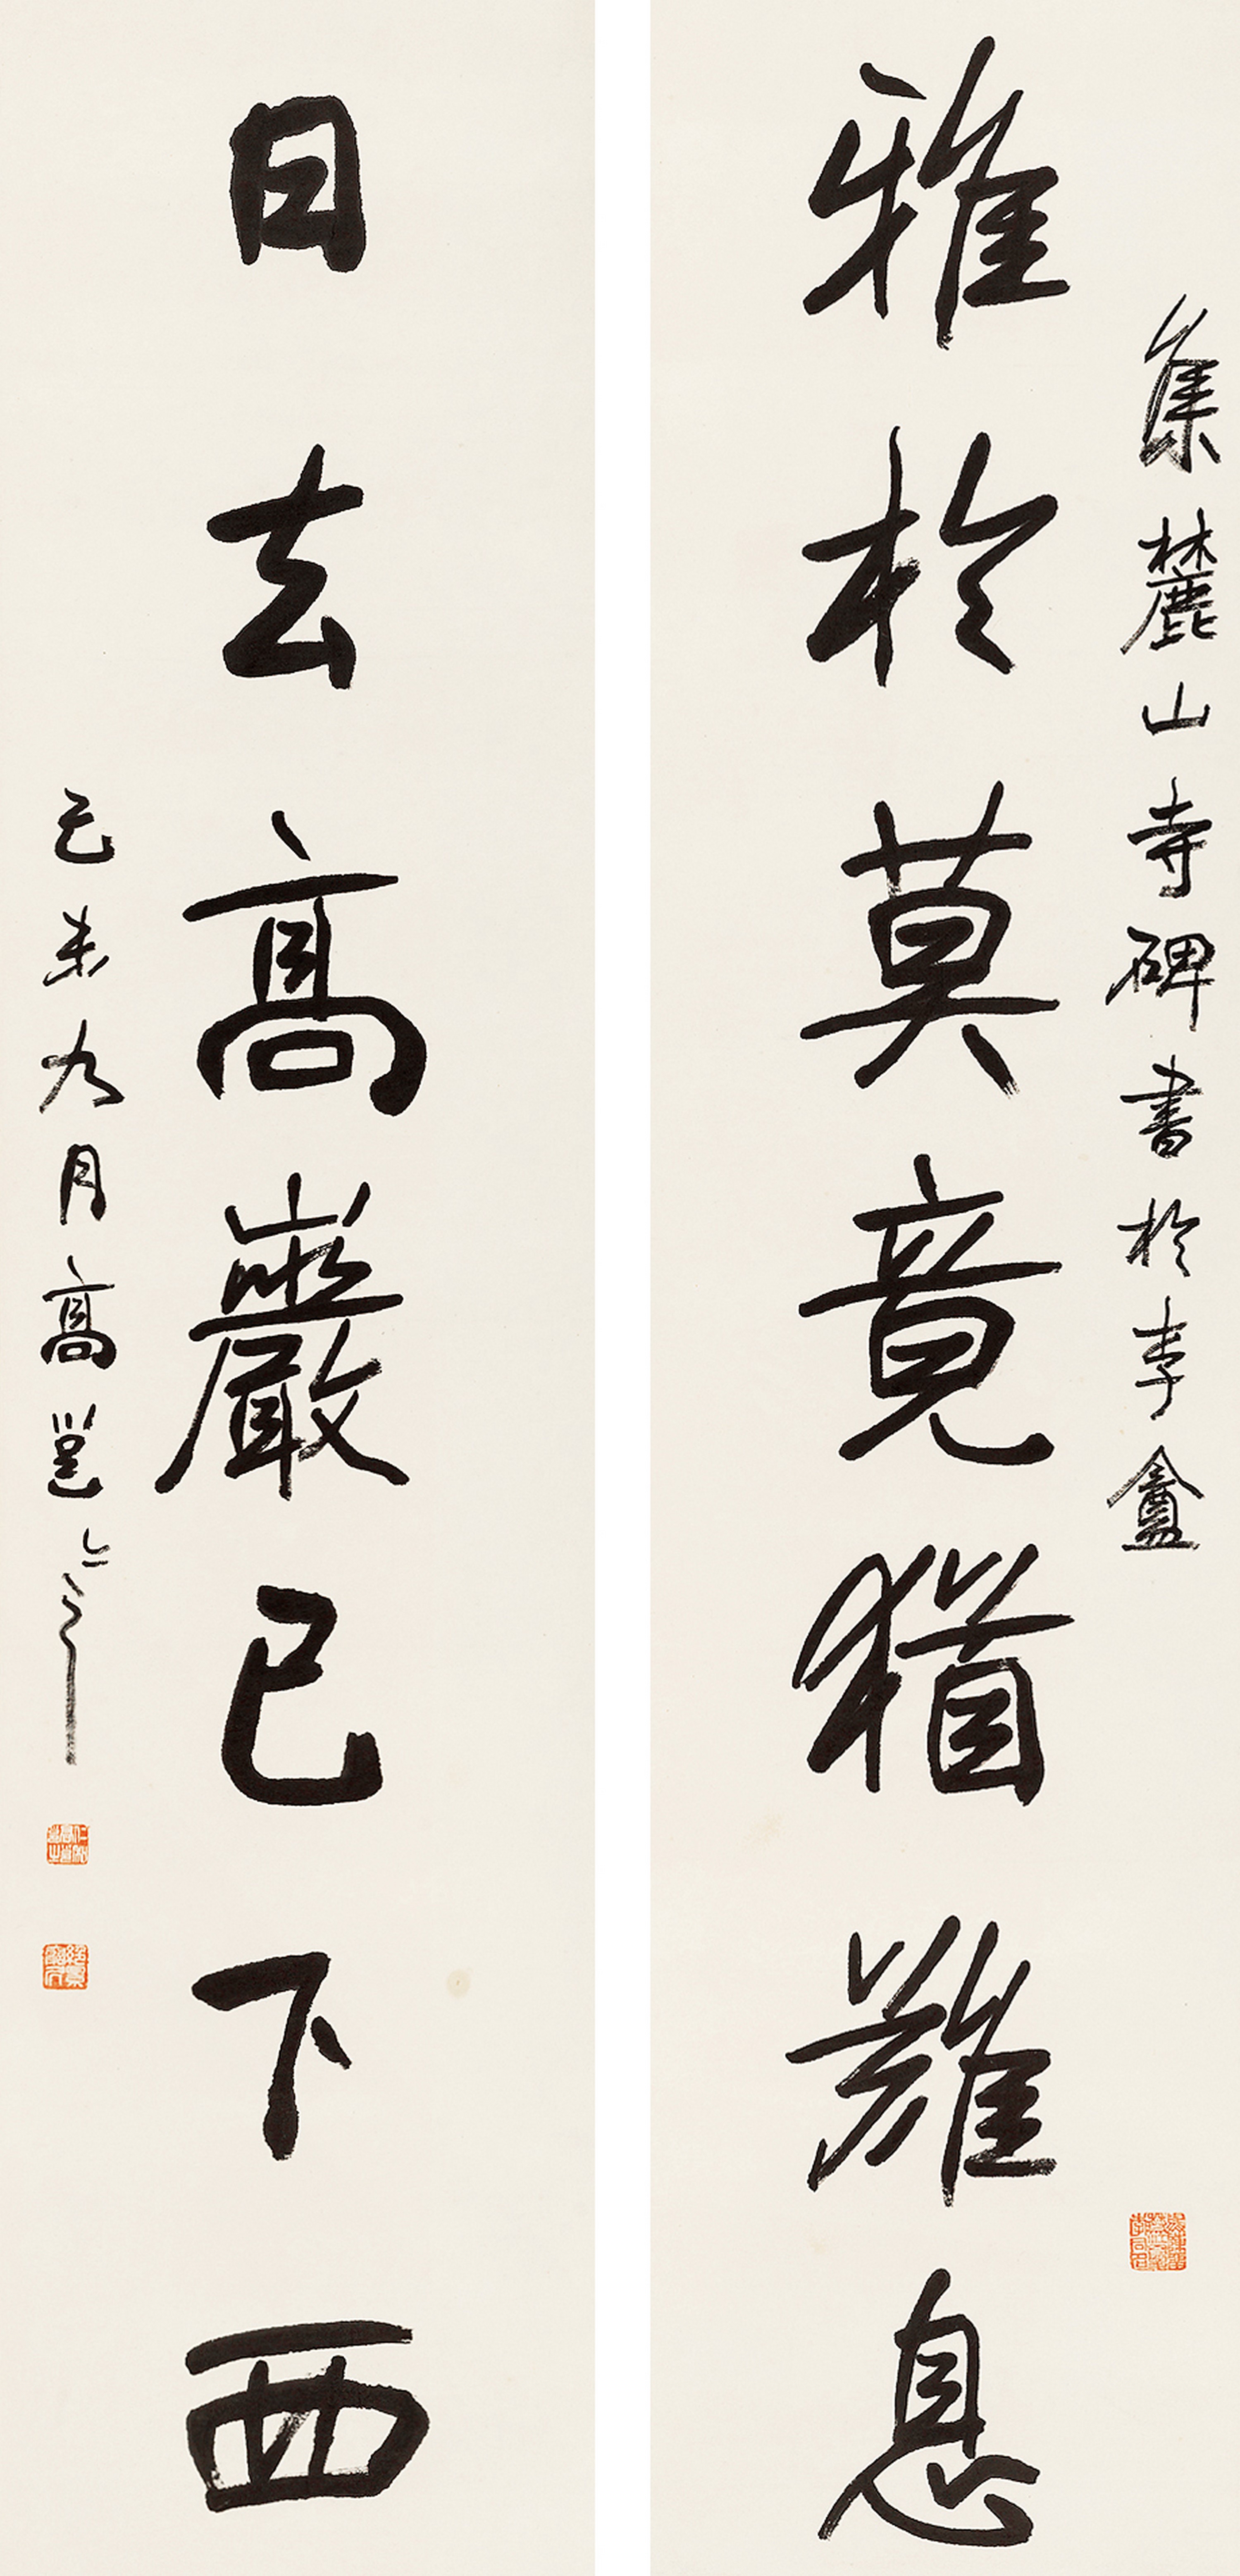 集麓山寺碑書於李盦
雅於莫竟猶難息
日去高巖已下西
己未九月高邕